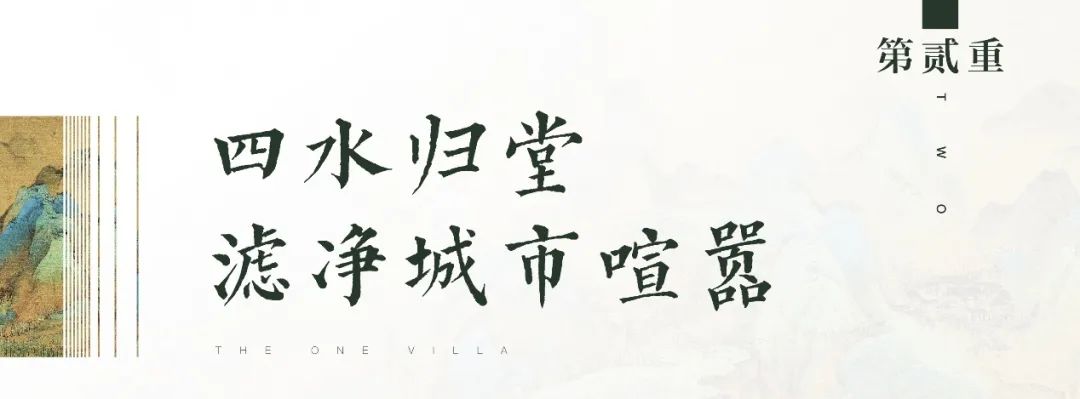 第贰重
TWO
四水归堂
滤净城市喧嚣
THE ONE VILLA